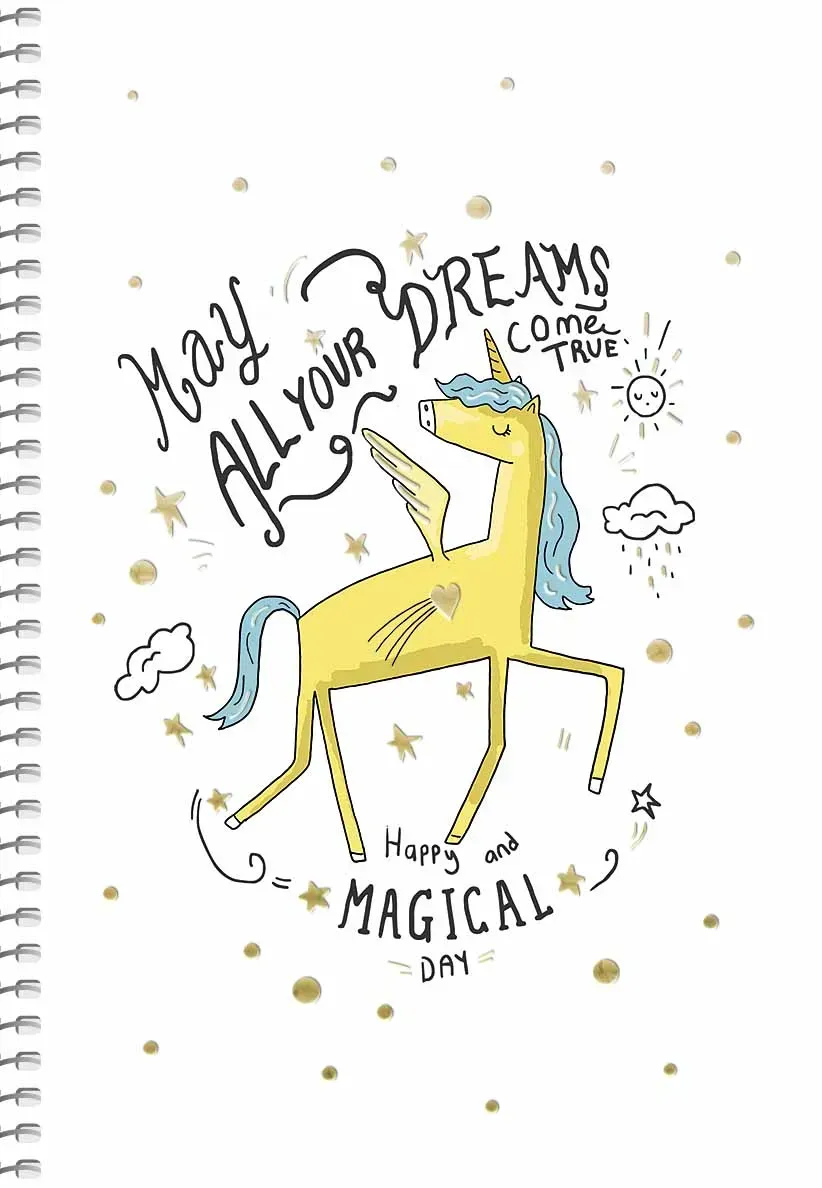 May
ALL YOUR DREAMS
come
TRUE
Happy and
MAGICAL
DAY